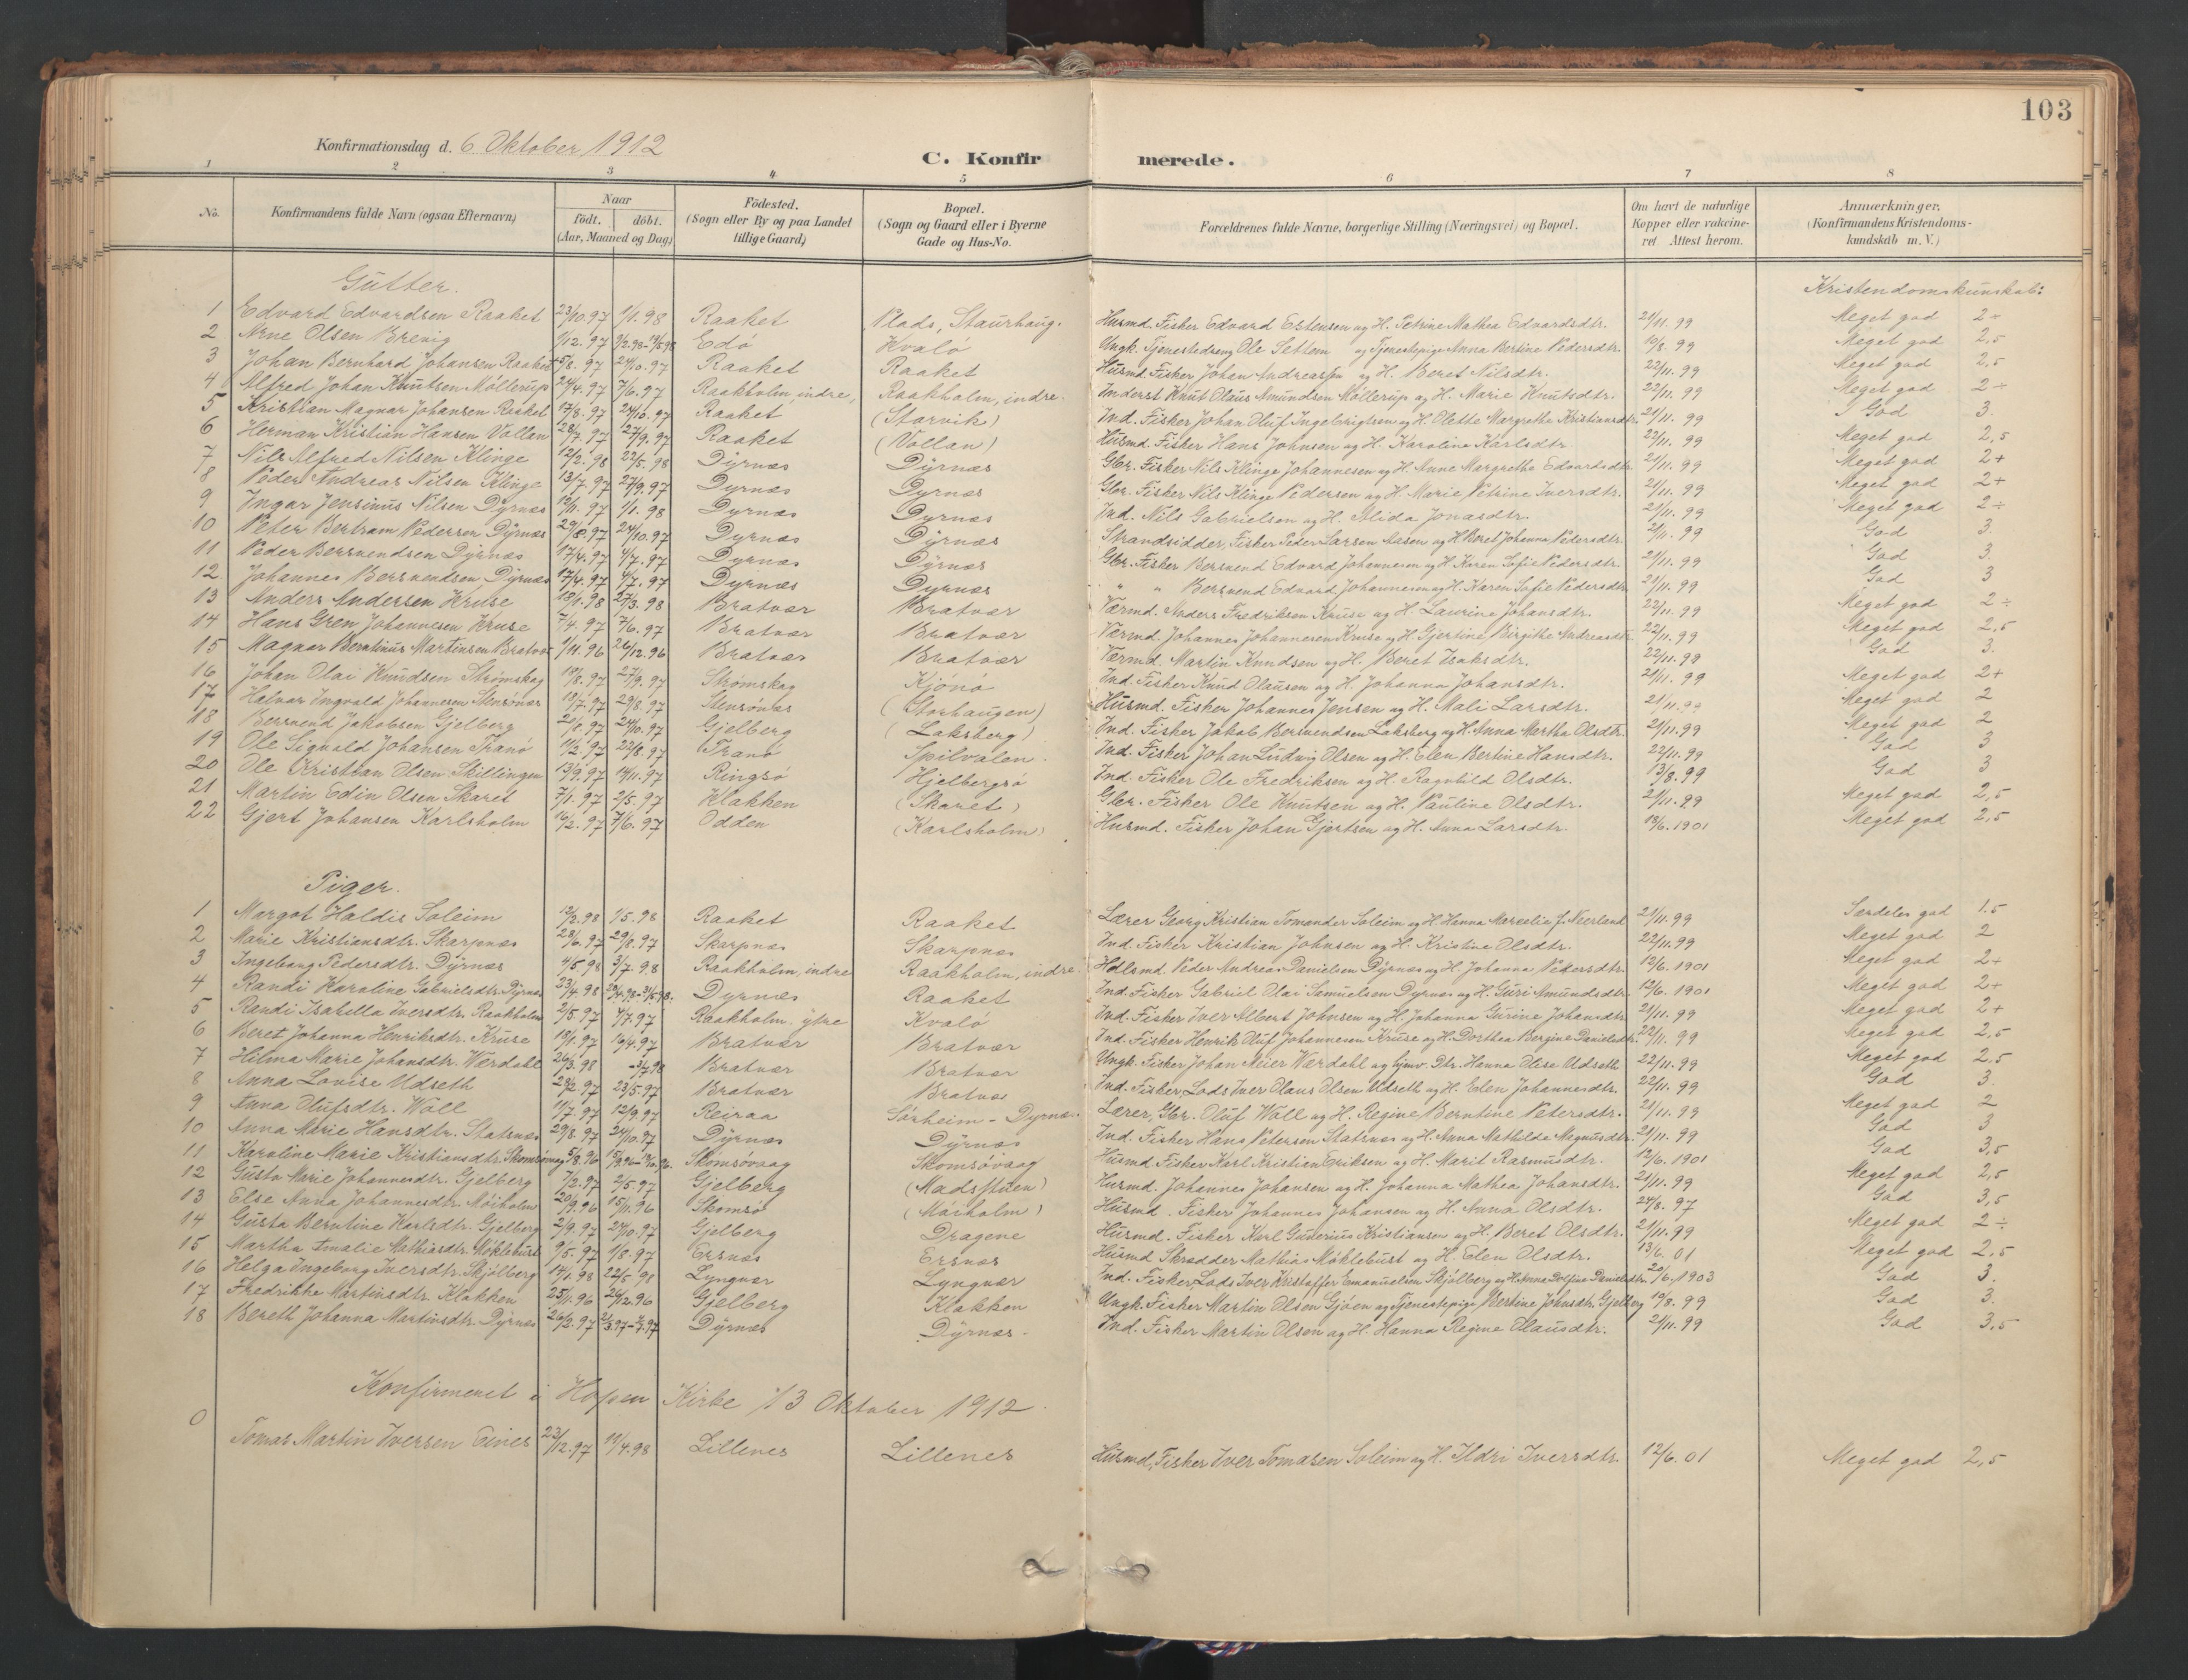 103
Konfirmationsdag d. 6. Oktober 1912
C. Konfirmerede.
1 2 3 4 5 6 7 8
No. | Konfirmandens fulde Navn (ogsaa Efternavn) | Naar födt. döbt. (Aar, Maaned og Dag) | Födested. (Sogn eller By og paa Landet tillige Gaard) | Bopæl. (Sogn og Gaard eller i Byerne Gade og Hus-No. | Forældrenes fulde Navne, borgerlige Stilling (Næringsvei) og Bopæl. | Om havt de naturlige Kopper eller vakcineret Attest herom. | Anmærkninger. (Konfirmandens Kristendomskundskab m. V.)
Gutter. Kristendomskunskab:
1 Edvard Edvardsen Raaket 23/10.97 1/1.98 Raaket Plads, Staurhaug. Husmd. Fisker Edvard Estensen og H. Petrine Mathea Edvardsdtr. 21/11.99 Meget god 2+
2 Arne Olsen Brevig 1/12.97 Edö Kvalö Ungk. Tjenestedreng Ole Settem og Tjenestepige Anna Bertine Pedersdtr. 10/8.99 Meget god 2,5
3 Johan Bernhard Johansen Raaket 5/8.97 24/10.97 Raaket Raaket Husmd. Fisker Johan Andreassen og H. Beret Nilsdtr. 22/11.99 Meget god 2,5
4 Alfred Johan Knutsen Möllerup 24/4.97 7/6.97 Raakholm, indre, Raakholm, indre. Inderst Knut Olaus Amundsen Möllerup og H. Marie Knutsdtr. 22/11.99 Meget god 2÷
5 Kristian Magnar Johansen Raaket 17/8.97 24/10.97 Raaket (Storvik) Ind. Fisker Johan Oluf Ingebrigtsen og H. Olette Margrethe Kristiansdtr. 21/11.99 God 3.
6 Herman Kristian Hansen Vollan 28/7.97 27/9.97 Raaket (Vollan) Husmd. Fisker Hans Johnsen og H. Karoline Karlsdtr. 22/11.99 Meget god 2,5
7 Nils Alfred Nilsen Klinge 12/2.98 22/5.98 Dyrnæs Dyrnæs Gbr. Fisker Nils Klinge Johannesen og H. Anne Margrethe Edvardsdtr. 21/11.99 Meget god 2+
8 Peder Andreas Nilsen Klinge 13/7.97 27/9.97 Dyrnæs Dyrnæs Gbr. Fisker Nils Klinge Pedersen og H. Marie Petrine Iversdtr. 21/11.99 Meget god 2+
9 Ingar Jensinus Nilsen Dyrnæs 12/11.97 1/1.98 Dyrnæs Dyrnæs Ind. Nils Gabrielsen og H. Alida Jonasdtr. 21/11.99 Meget god 2÷
10 Peter Bertram Pedersen Dyrnæs 29/8.97 24/10.97 Dyrnæs Dyrnæs Strandsidder, Fisker Peder Larsen Aasen og H. Beret Johanna Pedersdtr. 21/11.99 God 3.
11 Peder Bersvendsen Dyrnæs 17/4.97 4/7.97 Dyrnæs Dyrnæs Gbr. Fisker Bersvend Edvard Johannesen og H. Karen Sofie Pedersdtr. 21/11.99 God 3.
12 Johannes Bersvendsen Dyrnæs 17/4.97 4/7.97 Dyrnæs Dyrnæs " Bersvend Edvard Johannesen og H. Karen Sofie Pedersdtr. 21/11.99 God 3
13 Anders Andersen Kruse 18/1.98 27/3.98 Bratvær Bratvær Værmd. Anders Fredriksen Kruse og H. Laurine Johansdtr. 22/11.99 Meget god 2÷
14 Hans Gren Johannesen Kruse 7/4.97 7/6.97 Bratvær Bratvær Værmd. Johannes Johannesen Kruse og H. Gjertine Birgithe Andreasdtr. 22/11.99 Meget god 2,5
15 Magnar Berntinus Martinsen Bratvær 1/11.96 26/12.96 Bratvær Bratvær Værmd. Martin Knudsen og H. Beret Isaksdtr. 22/11.99 God 3.
16 Johan Olai Knudsen Strömskag 18/8.97 27/9.97 Strömskag Kjönö Ind. Fisker Knud Olausen og H. Johanna Johansdtr. 21/11.99 Meget god 2+
17 Halvar Ingvald Johannesen Stensönæs 13/7.97 29/8.97 Stensönæs (Storhaugen) Husmd. Fisker Johannes Jensen og H. Mali Larsdtr. 21/11.99 Meget god 2
18 Bersvend Jakobsen Gjelberg 24/10.97 Gjelberg (Laksberg) Ind. Fisker Jakob Bersvendsen Laksberg og H. Anna Martha Olsdtr. 21/11.99 Meget god 2
19 Ole Sigvald Johansen Tranö 11/2.97 22/8.97 Tranö Spilvalen. Ind. Fisker Johan Ludvig Olsen og H. Elen Bertine Hansdtr. 22/11.99 God 3
20 Ole Kristian Olsen Skillingen 13/9.97 14/11.97 Ringsö Hjelbergsö Ind. Fisker Ole Fredriksen og H. Ragnhild Olsdtr. 13/8.99 God 3
21 Martin Edin Olsen Skaret 7/1.97 2/5.97 Klakken (Skaret) Gbr. Fisker Ole Knutsen og H. Pauline Olsdtr. 21/11.99 Meget god 2,5
22 Gjert Johansen Karlsholm 16/2.97 7/6.97 Odden (Karlsholm) Husmd. Fisker Johan Gjertsen og H. Anna Larsdtr. 13/6.1901 Meget god 2,5
Piger.
1 Margot Haldis Soleim 12/3.98 1/5.98 Raaket Raaket Lærer Georg Kristian Tomander Soleim og H. Hanna Marselie f. Neerland 21/11.99 Særdeles god 1.5
2 Marie Kristiansdtr. Skarpnæs 28/6.97 29/8.97 Skarpnæs Skarpnæs Ind. Fisker Kristian Johnsen og H. Kristine Olsdtr. 22/11.99 Meget god 2
3 Ingeborg Pedersdtr. Dyrnæs 4/5.98 3/7.98 Raakholm, indre Raakholm, indre. Hdlsmd. Peder Andreas Danielsen Dyrnæs og H. Johanna Pedersdtr. 12/6.1901 Meget god 2+
4 Randi Karoline Gabrielsdtr. Dyrnæs 23/4.98 Dyrnæs Raaket Ind. Fisker Gabriel Olai Samuelsen Dyrnæs og H. Guri Amundsdtr. 12/6.1901 Meget god 2+
5 Randi Isabella Iversdtr. Raakholm 2/5.97 4/7.97 Raakholm ytre Kvalö Ind. Fisker Iver Albert Johnsen og H. Johanna Gurine Johansdtr. 21/11.99 Meget god 2+
6 Beret Johanna Henriksdtr. Kruse 18/1.97 16/4.97 Bratvær Bratvær Ind. Fisker Henrik Oluf Johannesen Kruse og H. Dorthea Bergine Danielsdtr. 22/11.99 Meget god 2,5
7 Hilma Marie Johansdtr. Værdahl 26/3.98 Bratvær Bratvær Ungk. Fisker Johan Meier Værdahl og hjmv. Dtr. Hanna Olise Udseth 22/11.99 Meget god 2,5
8 Anna Lovise Udseth 28/2.97 23/5.97 Bratvær Bratvær Ind. Fisker, Lods Iver Olaus Olsen Udseth og H. Elen Johannesdtr. 22/11.99 God 3
9 Anna Olufsdtr. Woll 11/7.97 12/9.97 Reiraa Sörheim - Dyrnæs. Lærer, Gbr. Oluf Woll og H. Regine Berntine Petersdtr. 21/11.99 Meget god 2
10 Anna Marie Hansdtr. Statsnæs 29/8.97 24/10.97 Dyrnæs Dyrnæs Ind. Fisker Hans Petersen Statsnæs og H. Anna Mathilde Magnusdtr. 21/11.99 God 3
11 Karoline Marie Kristiansdtr. Skomsövaag 5/8.96 Skomsövaag Skomsövaag Husmd. Fisker Karl Kristian Eriksen og H. Marit Rasmusdtr. 12/6.1901 God 3,5
12 Gusta Marie Johannesdtr. Gjelberg 7/2.97 2/5.97 Gjelberg (Madsstuen) Husmd. Johannes Johansen og H. Johanna Mathea Johansdtr. 21/11.99 Meget god 2,5
13 Else Anna Johannesdtr. Möiholm 20/9.96 15/11.96 Skomsö (Möiholm) Husmd. Fisker Johannes Johansen og H. Anna Olsdtr. 24/8.97 God 3,5
14 Gusta Berntine Karlsdtr. Gjelberg 2/9.97 24/10.97 Gjelberg Dragene Husmd. Fisker Karl Gunerius Kristiansen og H. Beret Olsdtr. 21/11.99 Meget god 2÷
15 Martha Amalie Mathiasdtr. Möklebust 9/5.97 1/8.97 Ersnæs Ersnæs Husmd Skrædder Mathias Möklebust og H. Elen Olsdtr. 13/6.01 Meget god 2,5
16 Helga Ingeborg Iversdtr. Skjölberg 14/1.98 22/5.98 Lyngvær Lyngvær Ind. Fisker, Lods Iver Kristoffer Emanuelsen Skjölberg og H. Anne Dolfine Danielsdtr. 20/6.1903 God 3.
17 Fredrikke Martinsdtr. Klakken 25/1.96 26/12.96 Gjelberg Klakken Ungk. Fisker Martin Olsen Gjöen og Tjenestepige Bertine Johnsdtr. Gjelberg 10/8.99 God 3.
18 Bereth Johanna Martinsdtr. Dyrnæs 26/2.97 Dyrnæs Dyrnæs. Ind. Fisker Martin Olsen og H. Hanna Regine Olausdtr. 21/11.99 God 3,5
Konfirmeret i Hopen Kirke 13 Oktober 1912.
0 Tomas Martin Iversen Eines 23/12.97 11/4.98 Lillenes Lillenes Husmd, Fisker Iver Tomasen Soleim og H. Ildri Iversdtr. 12/6.01 Meget god 2,5